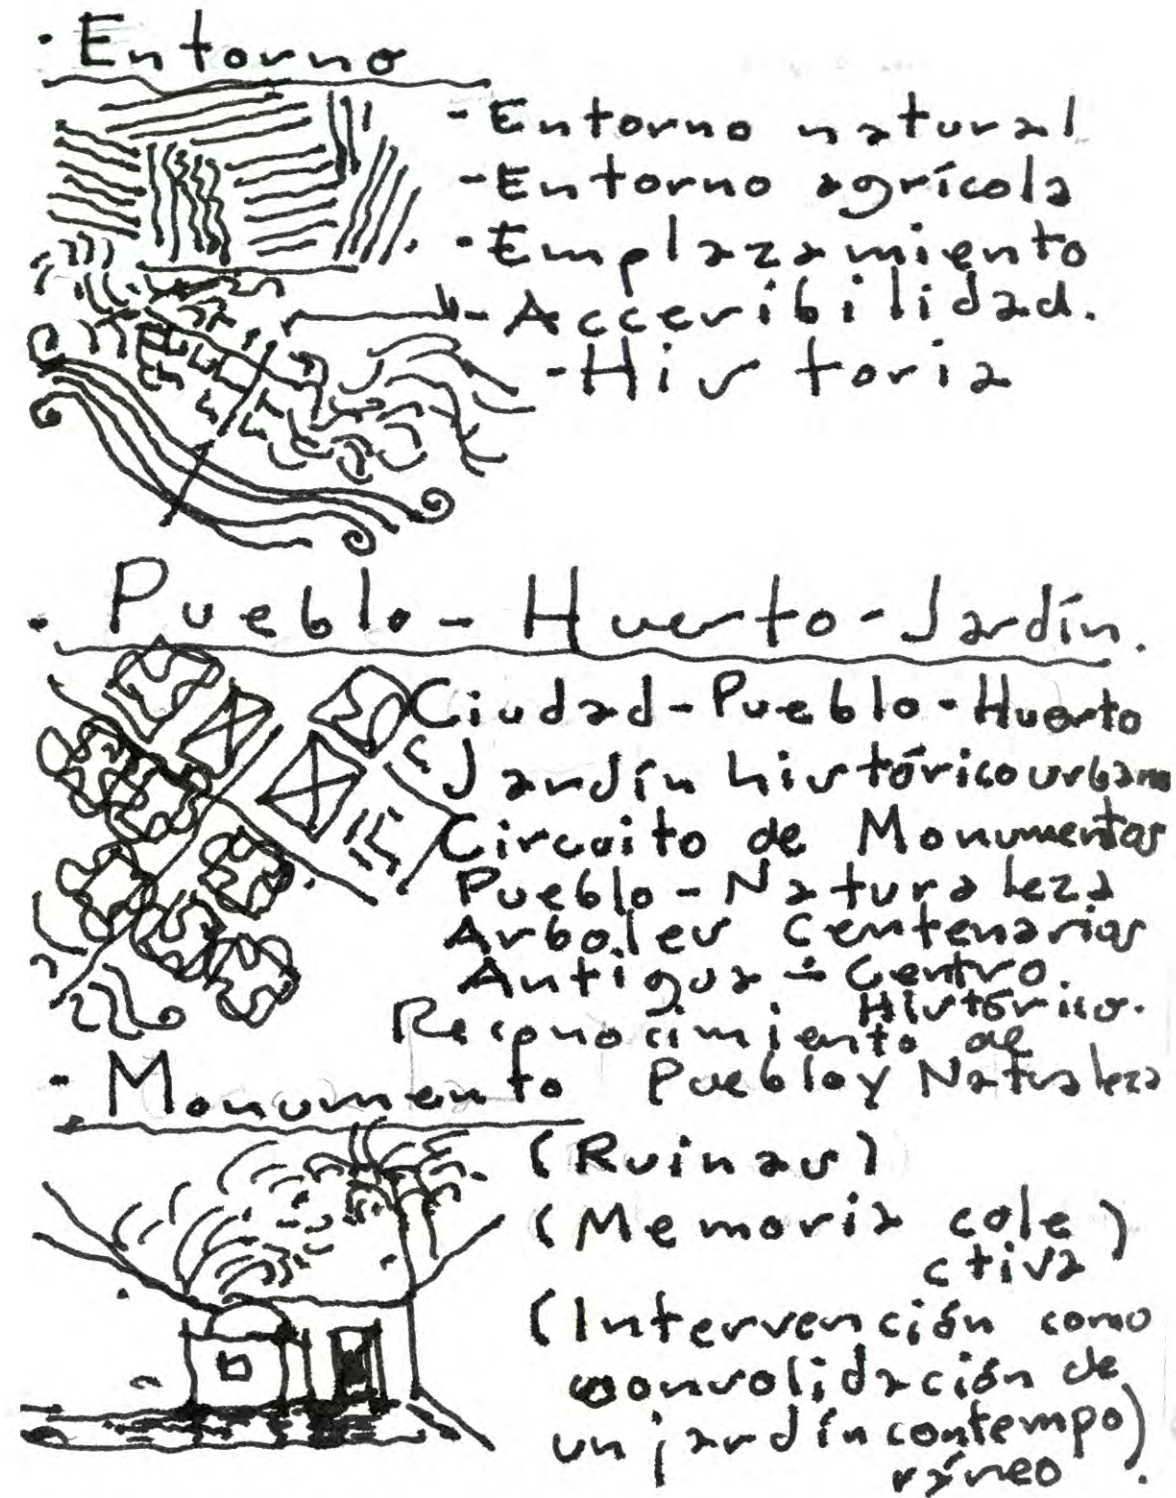 · Entorno
- Entorno natural
- Entorno agrícola
- Emplazamiento
- Accesibilidad.
- Historia
· Pueblo - Huerto - Jardín.
Ciudad - Pueblo - Huerto
Jardín histórico urbano
Circuito de Monumentos
Pueblo - Naturaleza
Arboles Centenarios
Antigua - Centro
Histórico.
Reconocimiento de
Pueblo y Naturaleza
- Monumento
(Ruinas)
(Memoria cole)
ctiva
(Intervención como
consolidación de
un jardín contempo)
ráneo.